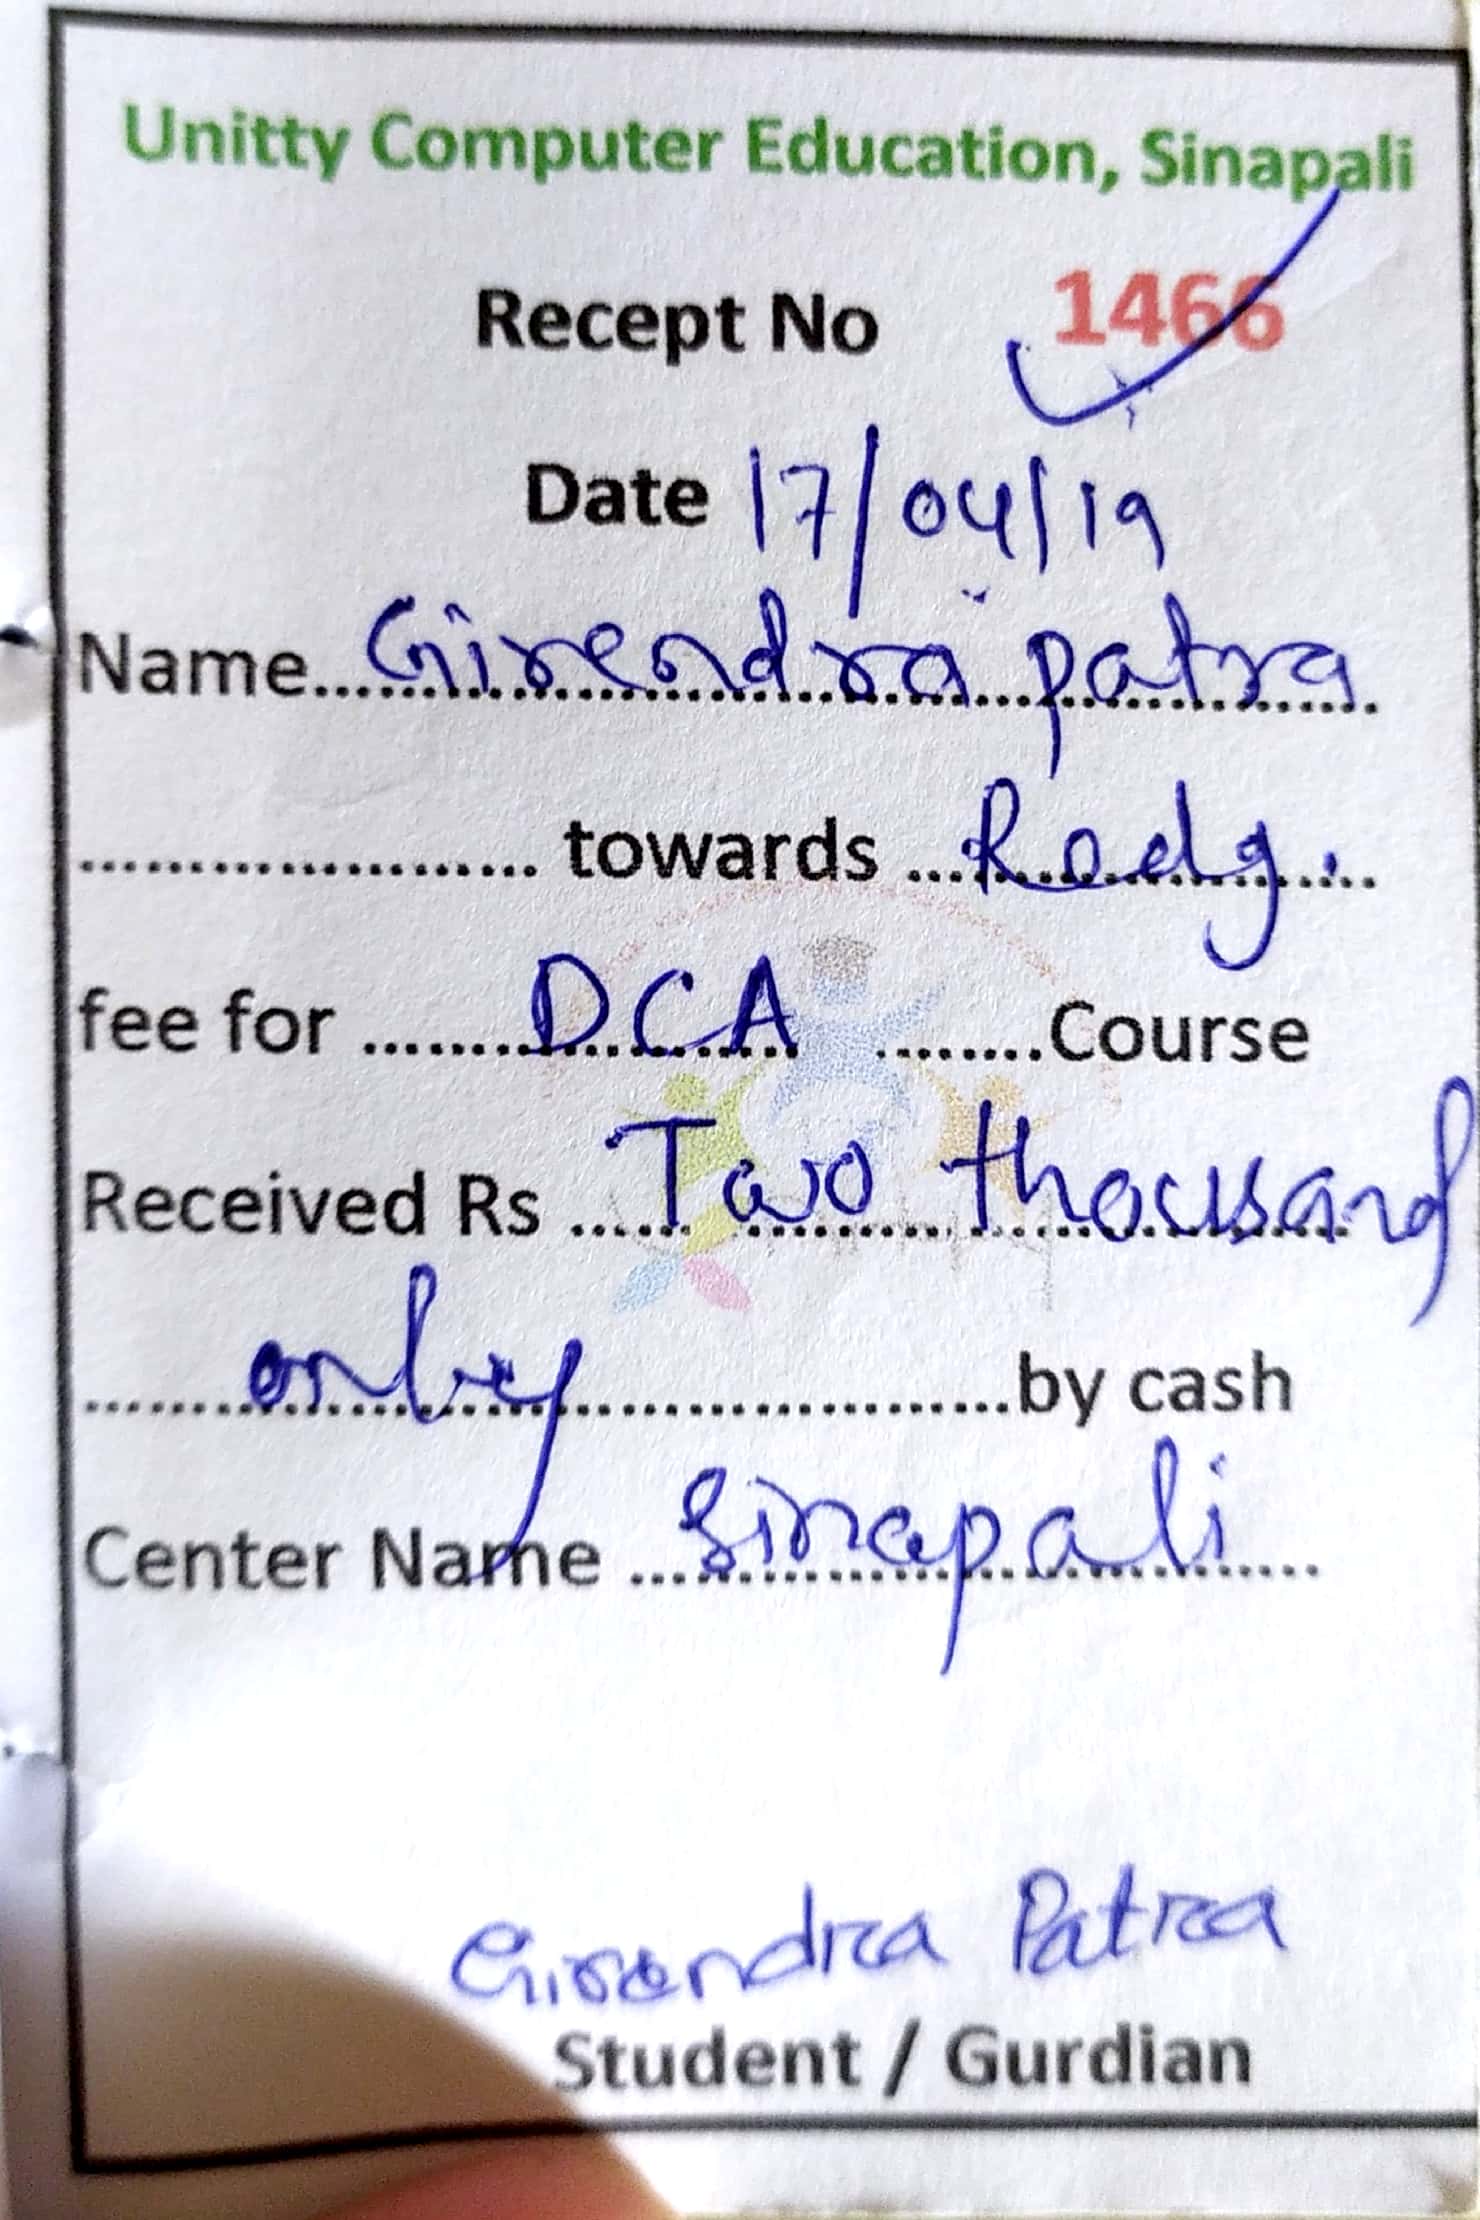 Unitty Computer Education, Sinapali
Recept No 1466
Date 17/04/19
Name...Girendra patra
.................... towards ...Redg.
fee for ........DCA ........Course
Received Rs ......Two thousand
......only....................by cash
Center Name ...Sinapali...
Girendra Patra
Student / Gurdian